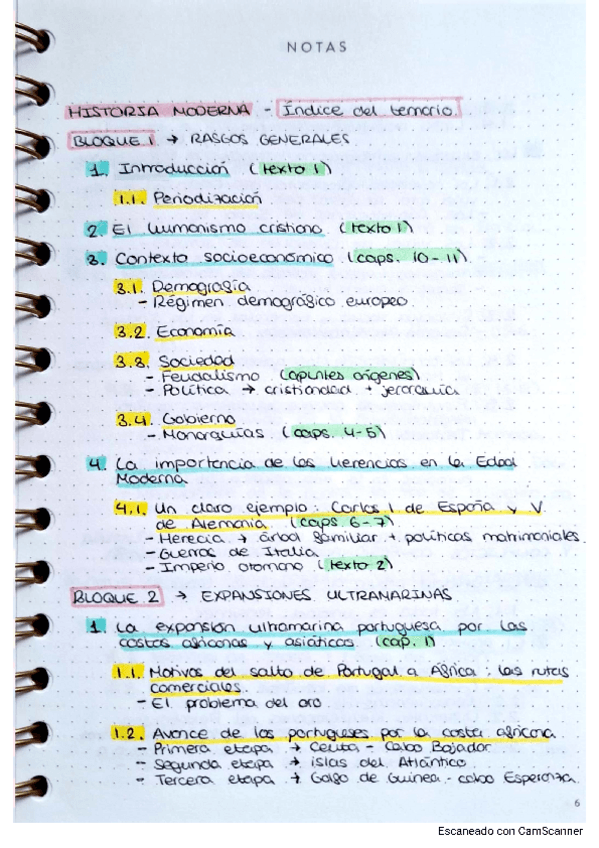 NOTAS
HISTORIA MODERNA - Índice del temario.
BLOQUE 1 → RASGOS GENERALES
1. Introducción (texto 1)
1.1. Periodización
2. El humanismo cristiano (texto 1)
3. Contexto socioeconómico (caps. 10-11)
3.1. Demografía
- Régimen demográfico europeo
3.2. Economía
3.3. Sociedad
- Feudalismo (apuntes orígenes)
- Política → cristiandad + jerarquía
3.4. Gobierno
- Monarquías (caps. 4-5)
4. La importancia de las herencias en la Edad
Moderna
4.1. Un claro ejemplo: Carlos I de España y V
de Alemania. (caps 6-7)
- Herecia → árbol familiar + políticas matrimoniales.
- Guerras de Italia
- Imperio otomano (texto 2)
BLOQUE 2 → EXPANSIONES ULTRAMARINAS
1. La expansión ultramarina portuguesa por las
costas africanas y asiáticas (cap. 1)
1.1. Motivos del salto de Portugal a África: las rutas
comerciales.
- El problema del oro
1.2. Avance de los portugueses por la costa africana
- Primera etapa → Ceuta - Cabo Bojador
- Segunda etapa → islas del Atlántico
- Tercera etapa → Golgo de Guinea - cabo Esperanza
6
Escaneado con CamScanner